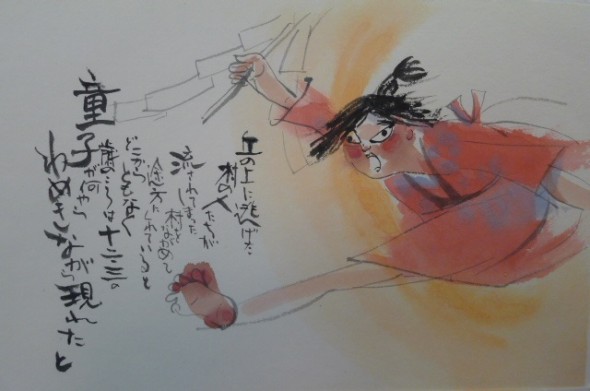 丘の上に逃げた
村の人たちが
流されてしまった
村をながめて
途方にくれていると
どこから
ともなく
歳のころは十二三。
童子が何やら
わめきながら現れたと